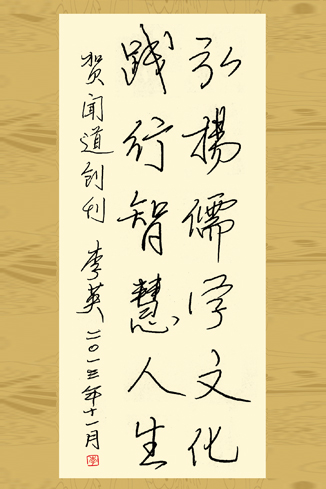 弘揚儒学文化
践行智慧人生
贺闻道创刊 李英 二〇一三年十一月